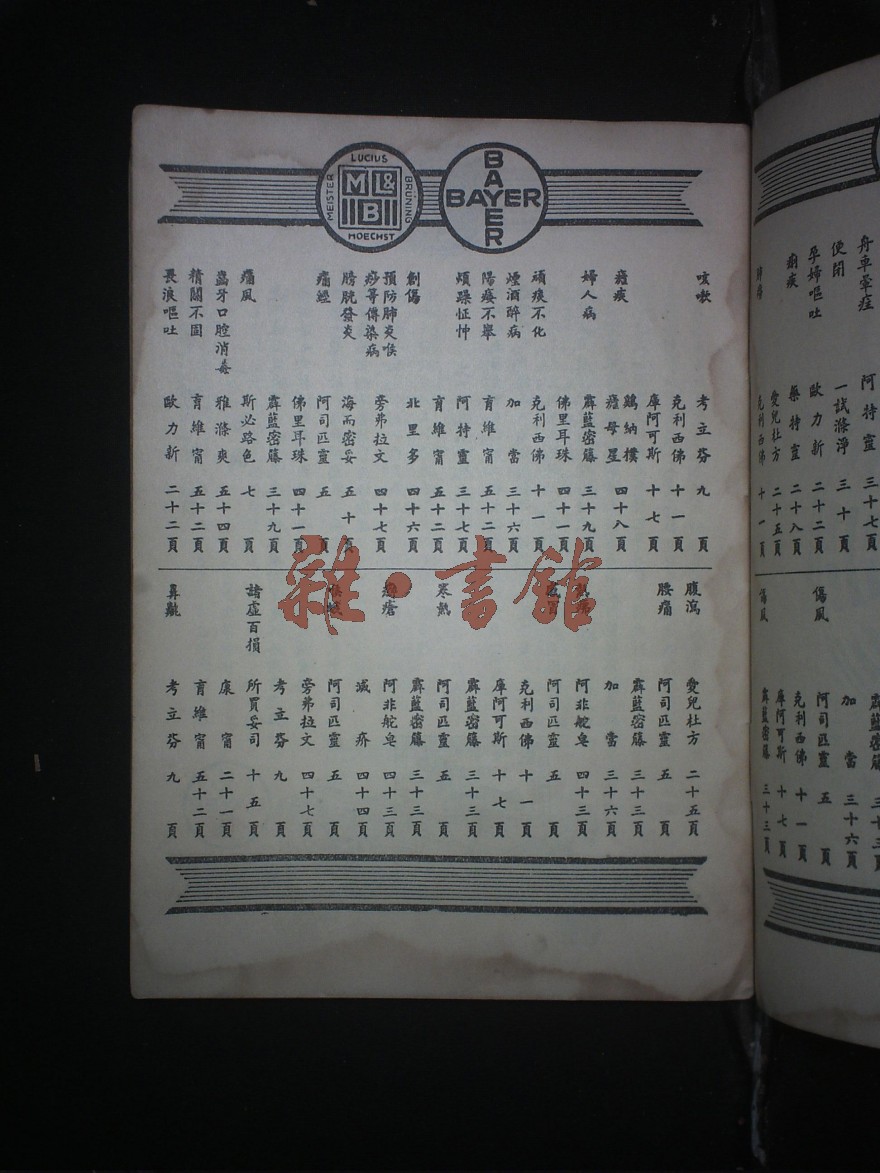 LUCIUS
MEISTER
ML&B
BRÜNING
HOECHST
BAYER
BAYER
咳嗽 考立芬 九頁
克利西佛 十一頁
庫阿可斯 十七頁
瘧疾 鷄納樸
瘧母星 四十八頁
婦人病 霹藍密藤 三十九頁
佛里耳珠 四十一頁
頑痰不化 克利西佛 十一頁
煙酒醉病 加當 三十六頁
陽痿不舉 育維甯 五十二頁
煩躁怔忡 阿特靈 三十七頁
育維甯 五十二頁
創傷 北里多 四十六頁
預防肺炎喉痧等傳染病 旁弗拉文 四十七頁
膀胱發炎 海而密妥 五十頁
痛經 阿司匹靈 五頁
佛里耳珠 四十一頁
霹藍密藤 三十九頁
痛風 斯必路色 七頁
蟲牙口腔消毒 雅滌爽 五十四頁
精關不固 育維甯 五十二頁
畏浪嘔吐 歐力新 二十二頁
腹瀉 愛兒杜方 二十五頁
腰痛 阿司匹靈 五頁
霹藍密藤 三十三頁
加當 三十六頁
阿非舵皂 四十三頁
阿司匹靈 五頁
克利西佛 十一頁
庫阿可斯 十七頁
霹藍密藤 三十三頁
寒熱 阿司匹靈 五頁
霹藍密藤 三十三頁
瘡 阿非舵皂 四十三頁
滅疥 四十四頁
阿司匹靈 五頁
旁弗拉文 四十七頁
考立芬 九頁
諸虛百損 所買妥司 十五頁
康甯 二十一頁
育維甯 五十二頁
鼻齆 考立芬 九頁
雜·書館
舟車暈症 阿特靈 三十七頁
便閉 一試滌淨 三十頁
孕婦嘔吐 歐力新 二十二頁
樂特靈 二十八頁
痢疾 愛兒杜方 二十五頁
克利西佛 十一頁
霹藍密藤 三十三頁
加當 三十六頁
傷風 阿司匹靈 五頁
克利西佛 十一頁
庫阿可斯 十七頁
霹藍密藤 三十三頁